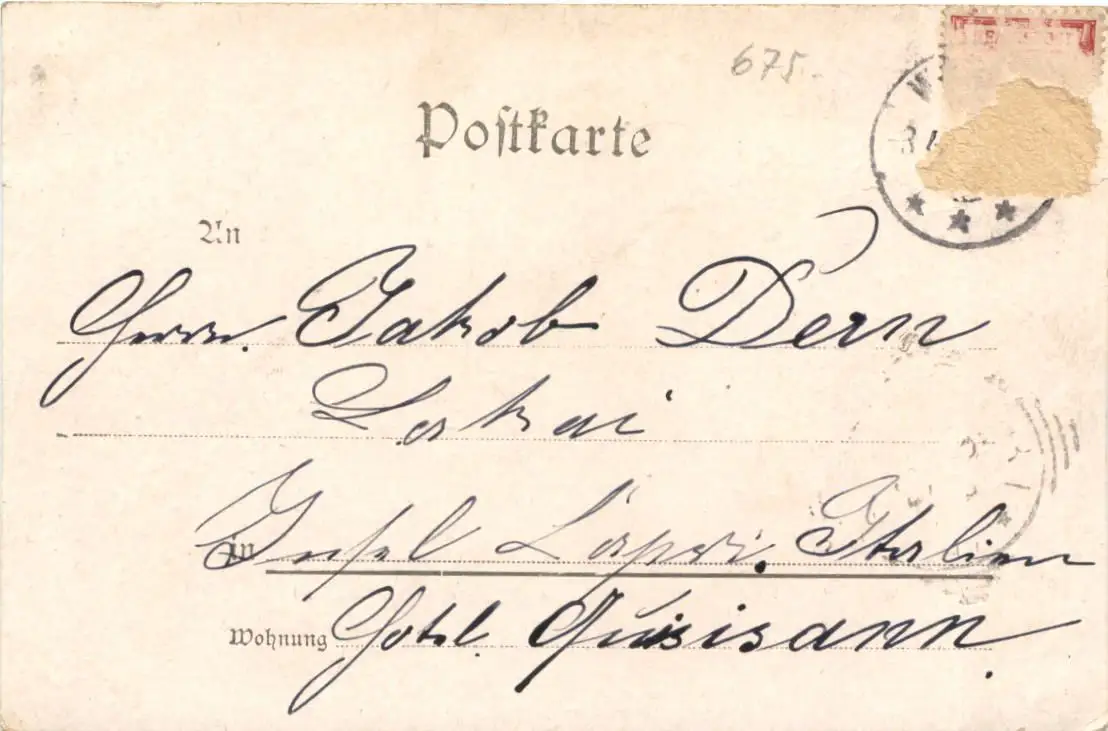 675.
Postkarte
An
Herrn. Jakob Dern
Lakai
in Insel Capri. Italien
Wohnung Hotel. Quisisann.